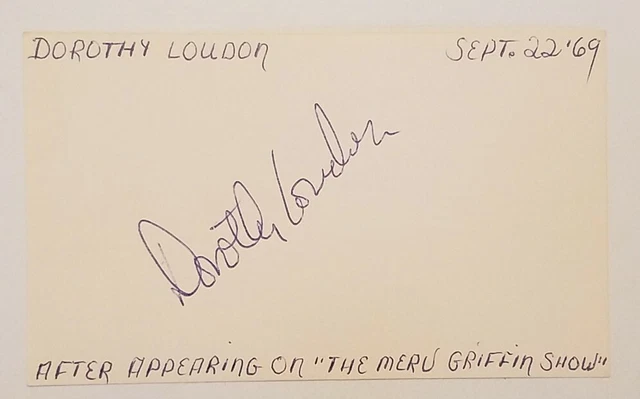 DOROTHY LOUDON
SEPT. 22 '69
Dorothy Loudon
AFTER APPEARING ON "THE MERV GRIFFIN SHOW"